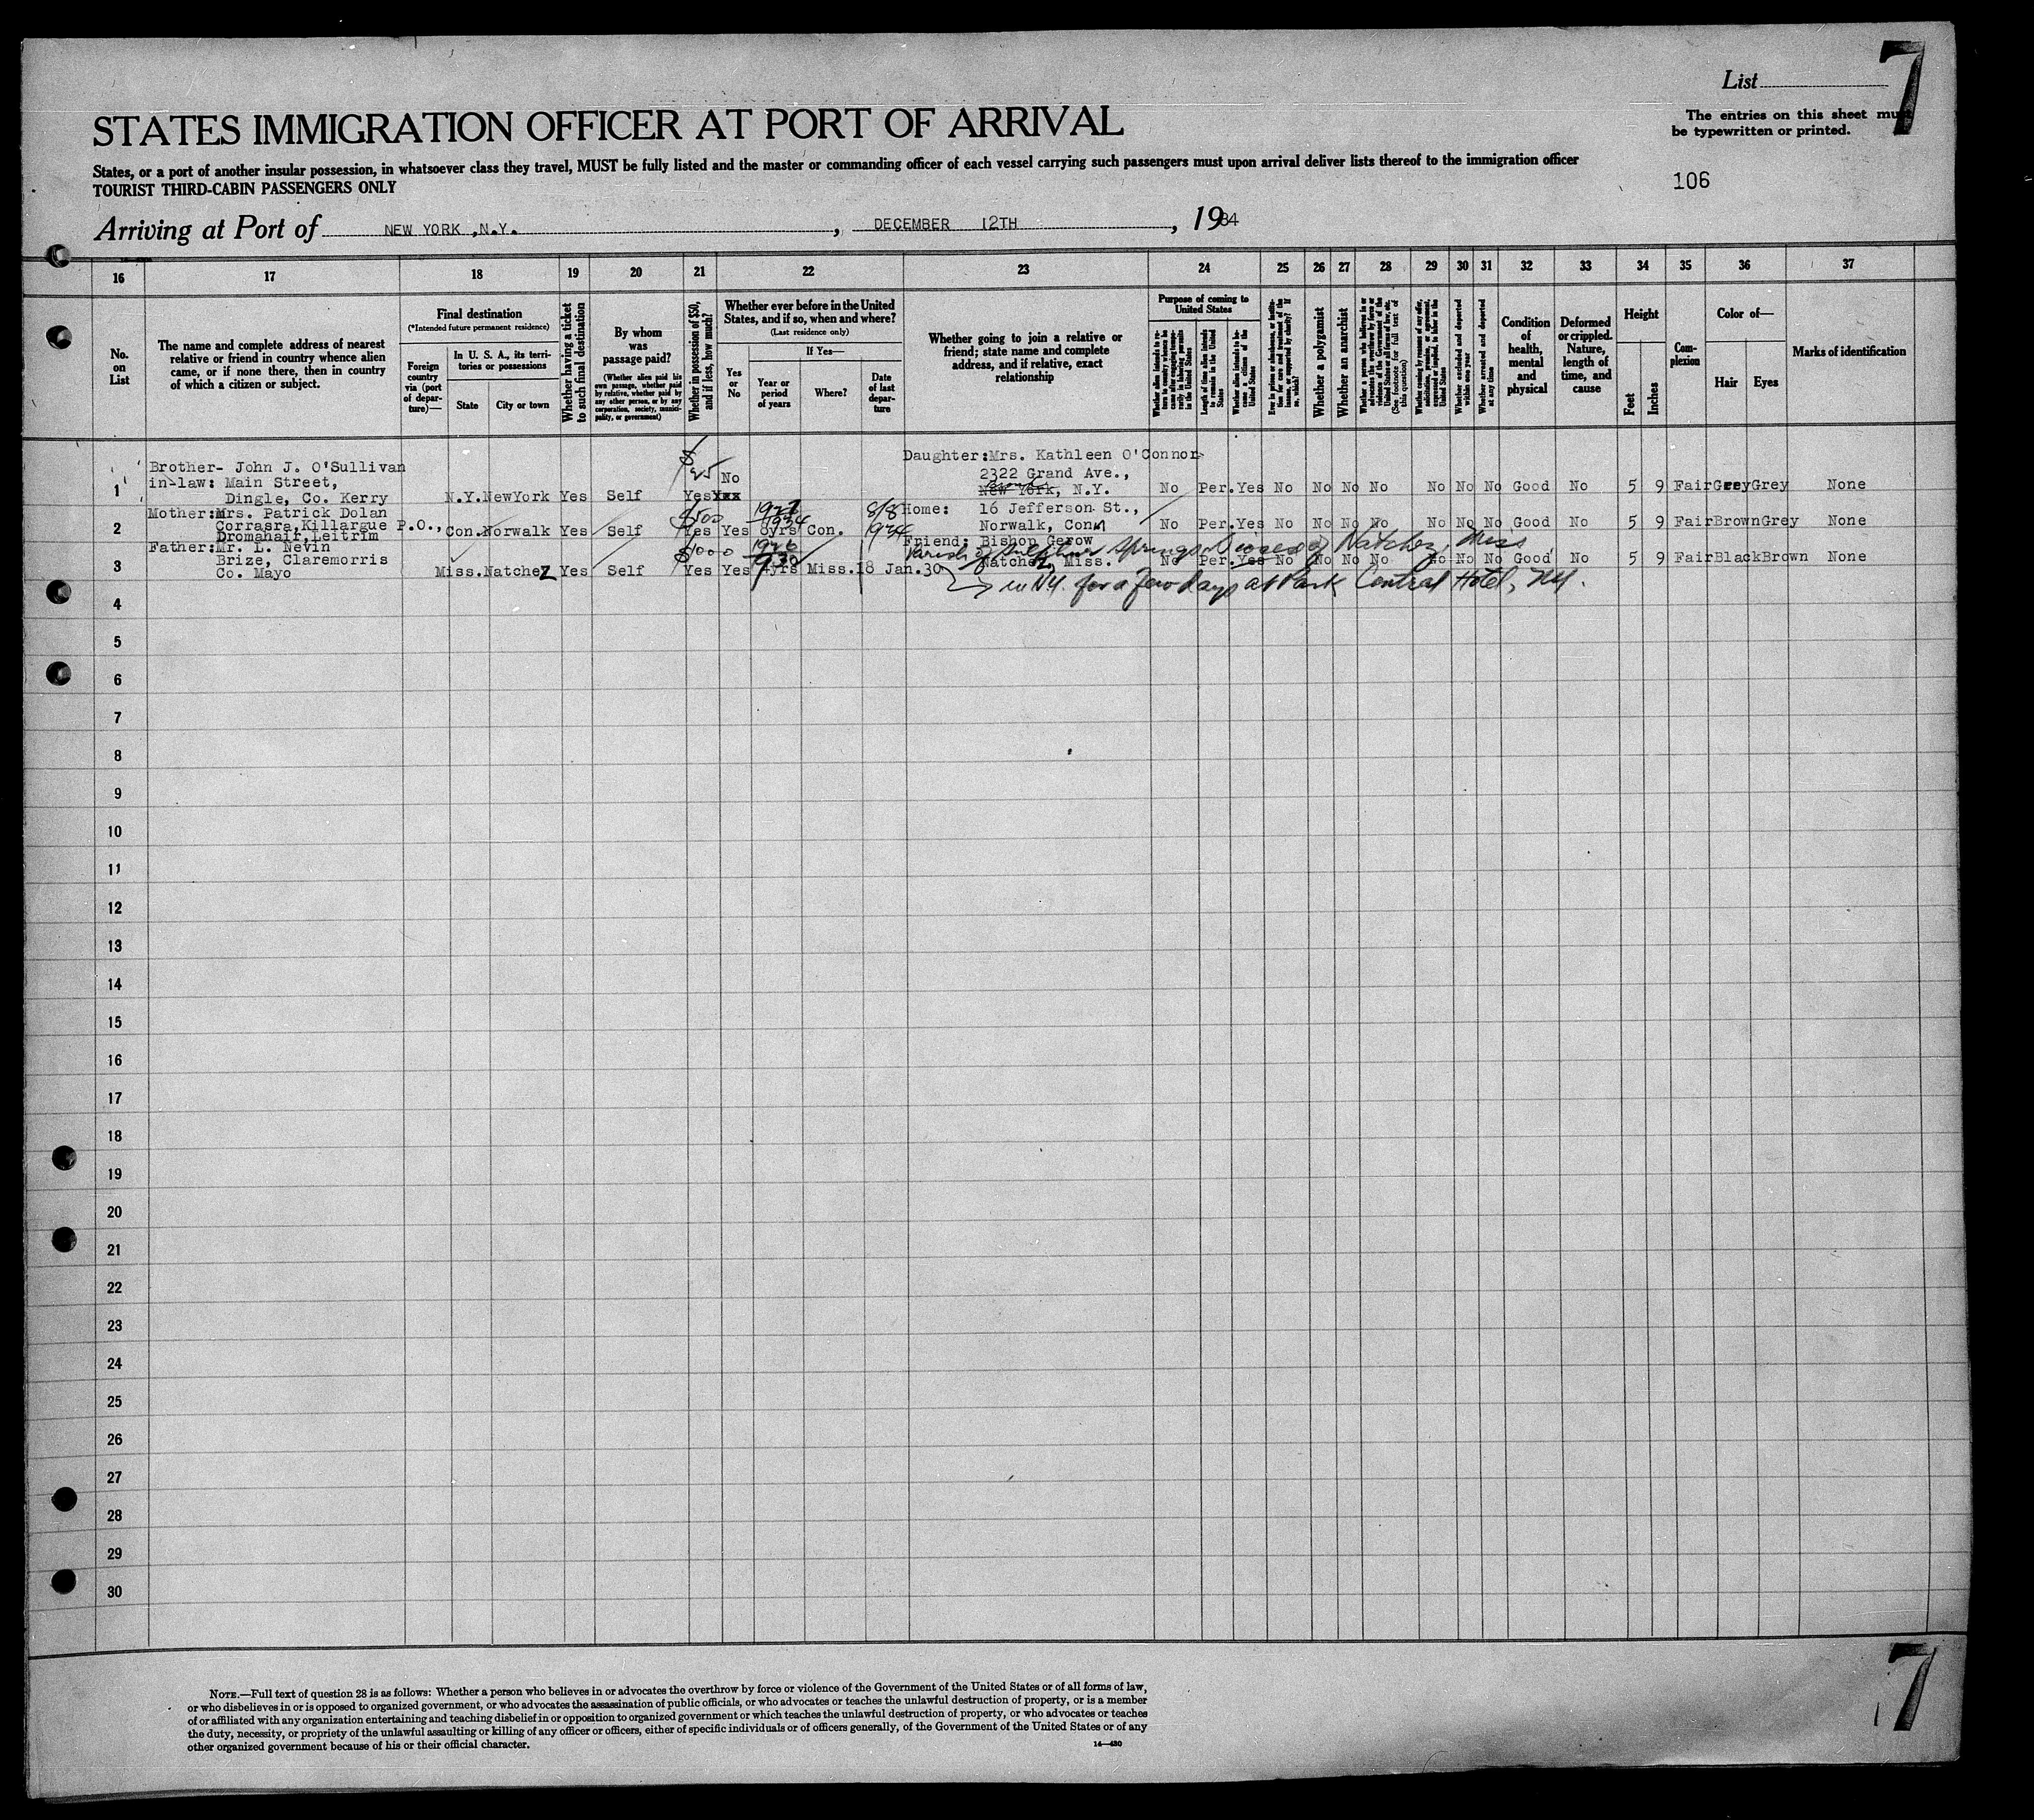 List 7
The entries on this sheet must
be typewritten or printed.
STATES IMMIGRATION OFFICER AT PORT OF ARRIVAL
States, or a port of another insular possession, in whatsoever class they travel, MUST be fully listed and the master or commanding officer of each vessel carrying such passengers must upon arrival deliver lists thereof to the immigration officer
TOURIST THIRD-CABIN PASSENGERS ONLY
106
Arriving at Port of NEW YORK ,N.Y. , DECEMBER 12TH , 1934
16 17 18 19 20 21 22 23 24 25 26 27 28 29 30 31 32 33 34 35 36 37
No. on List
The name and complete address of nearest
relative or friend in country whence alien
came, or if none there, then in country
of which a citizen or subject.
Final destination
(*Intended future permanent residence)
Foreign country via (port of departure)—
In U. S. A., its territories or possessions
State
City or town
Whether having a ticket to such final destination
By whom was passage paid?
(Whether alien paid his own passage, whether paid by relative, whether paid by any other person, or by any corporation, society, municipality, or government)
Whether in possession of $50, and if less, how much?
Whether ever before in the United
States, and if so, when and where?
(Last residence only)
Yes or No
If Yes—
Year or period of years
Where?
Date of last departure
Whether going to join a relative or
friend; state name and complete
address, and if relative, exact
relationship
Purpose of coming to United States
Length of time alien intends to remain in the United States
Whether alien intends to become a citizen of the United States
Whether a polygamist
Whether an anarchist
Whether excluded and deported within one year
Whether arrested and deported at any time
Condition of health, mental and physical
Deformed or crippled. Nature, length of time, and cause
Height
Feet
Inches
Complexion
Color of—
Hair
Eyes
Marks of identification
Brother- John J. O'Sullivan
in-law: Main Street,
Dingle, Co. Kerry
1 N.Y. NewYork Yes Self $25 Yes No xxx
Daughter:Mrs. Kathleen O'Connor
2322 Grand Ave.,
Bronx
New York, N.Y.
No Per. Yes No No No No No No No Good No 5 9 Fair Grey Grey None
Mother:Mrs. Patrick Dolan
Corrasra,Killargue P.O.,
Dromahair,Leitrim
2 Con. Norwalk Yes Self $500 Yes Yes 8yrs 1934 Con. 8/8 1934
Home: 16 Jefferson St.,
Norwalk, Conn
No Per. Yes No No No No No No No Good No 5 9 Fair Brown Grey None
Father:Mr. L. Nevin
Brize, Claremorris
Co. Mayo
3 Miss. Natchez Yes Self $1000 Yes Yes 1926 1930 4yrs Miss. 18 Jan.30
Friend: Bishop Gerow
Parish of Sulphur Springs Diocese of Natchez, Miss
Natchez, Miss.
No Per. Yes No No No No No No No Good No 5 9 Fair Black Brown None
in N.Y. for a few days at Park Central Hotel, NY.
4
5
6
7
8
9
10
11
12
13
14
15
16
17
18
19
20
21
22
23
24
25
26
27
28
29
30
NOTE.—Full text of question 28 is as follows: Whether a person who believes in or advocates the overthrow by force or violence of the Government of the United States or of all forms of law,
or who disbelieves in or is opposed to organized government, or who advocates the assassination of public officials, or who advocates or teaches the unlawful destruction of property, or is a member
of or affiliated with any organization entertaining and teaching disbelief in or opposition to organized government or which teaches the unlawful destruction of property, or who advocates or teaches
the duty, necessity, or propriety of the unlawful assaulting or killing of any officer or officers, either of specific individuals or of officers generally, of the Government of the United States or of any
other organized government because of his or their official character.
14—480
7